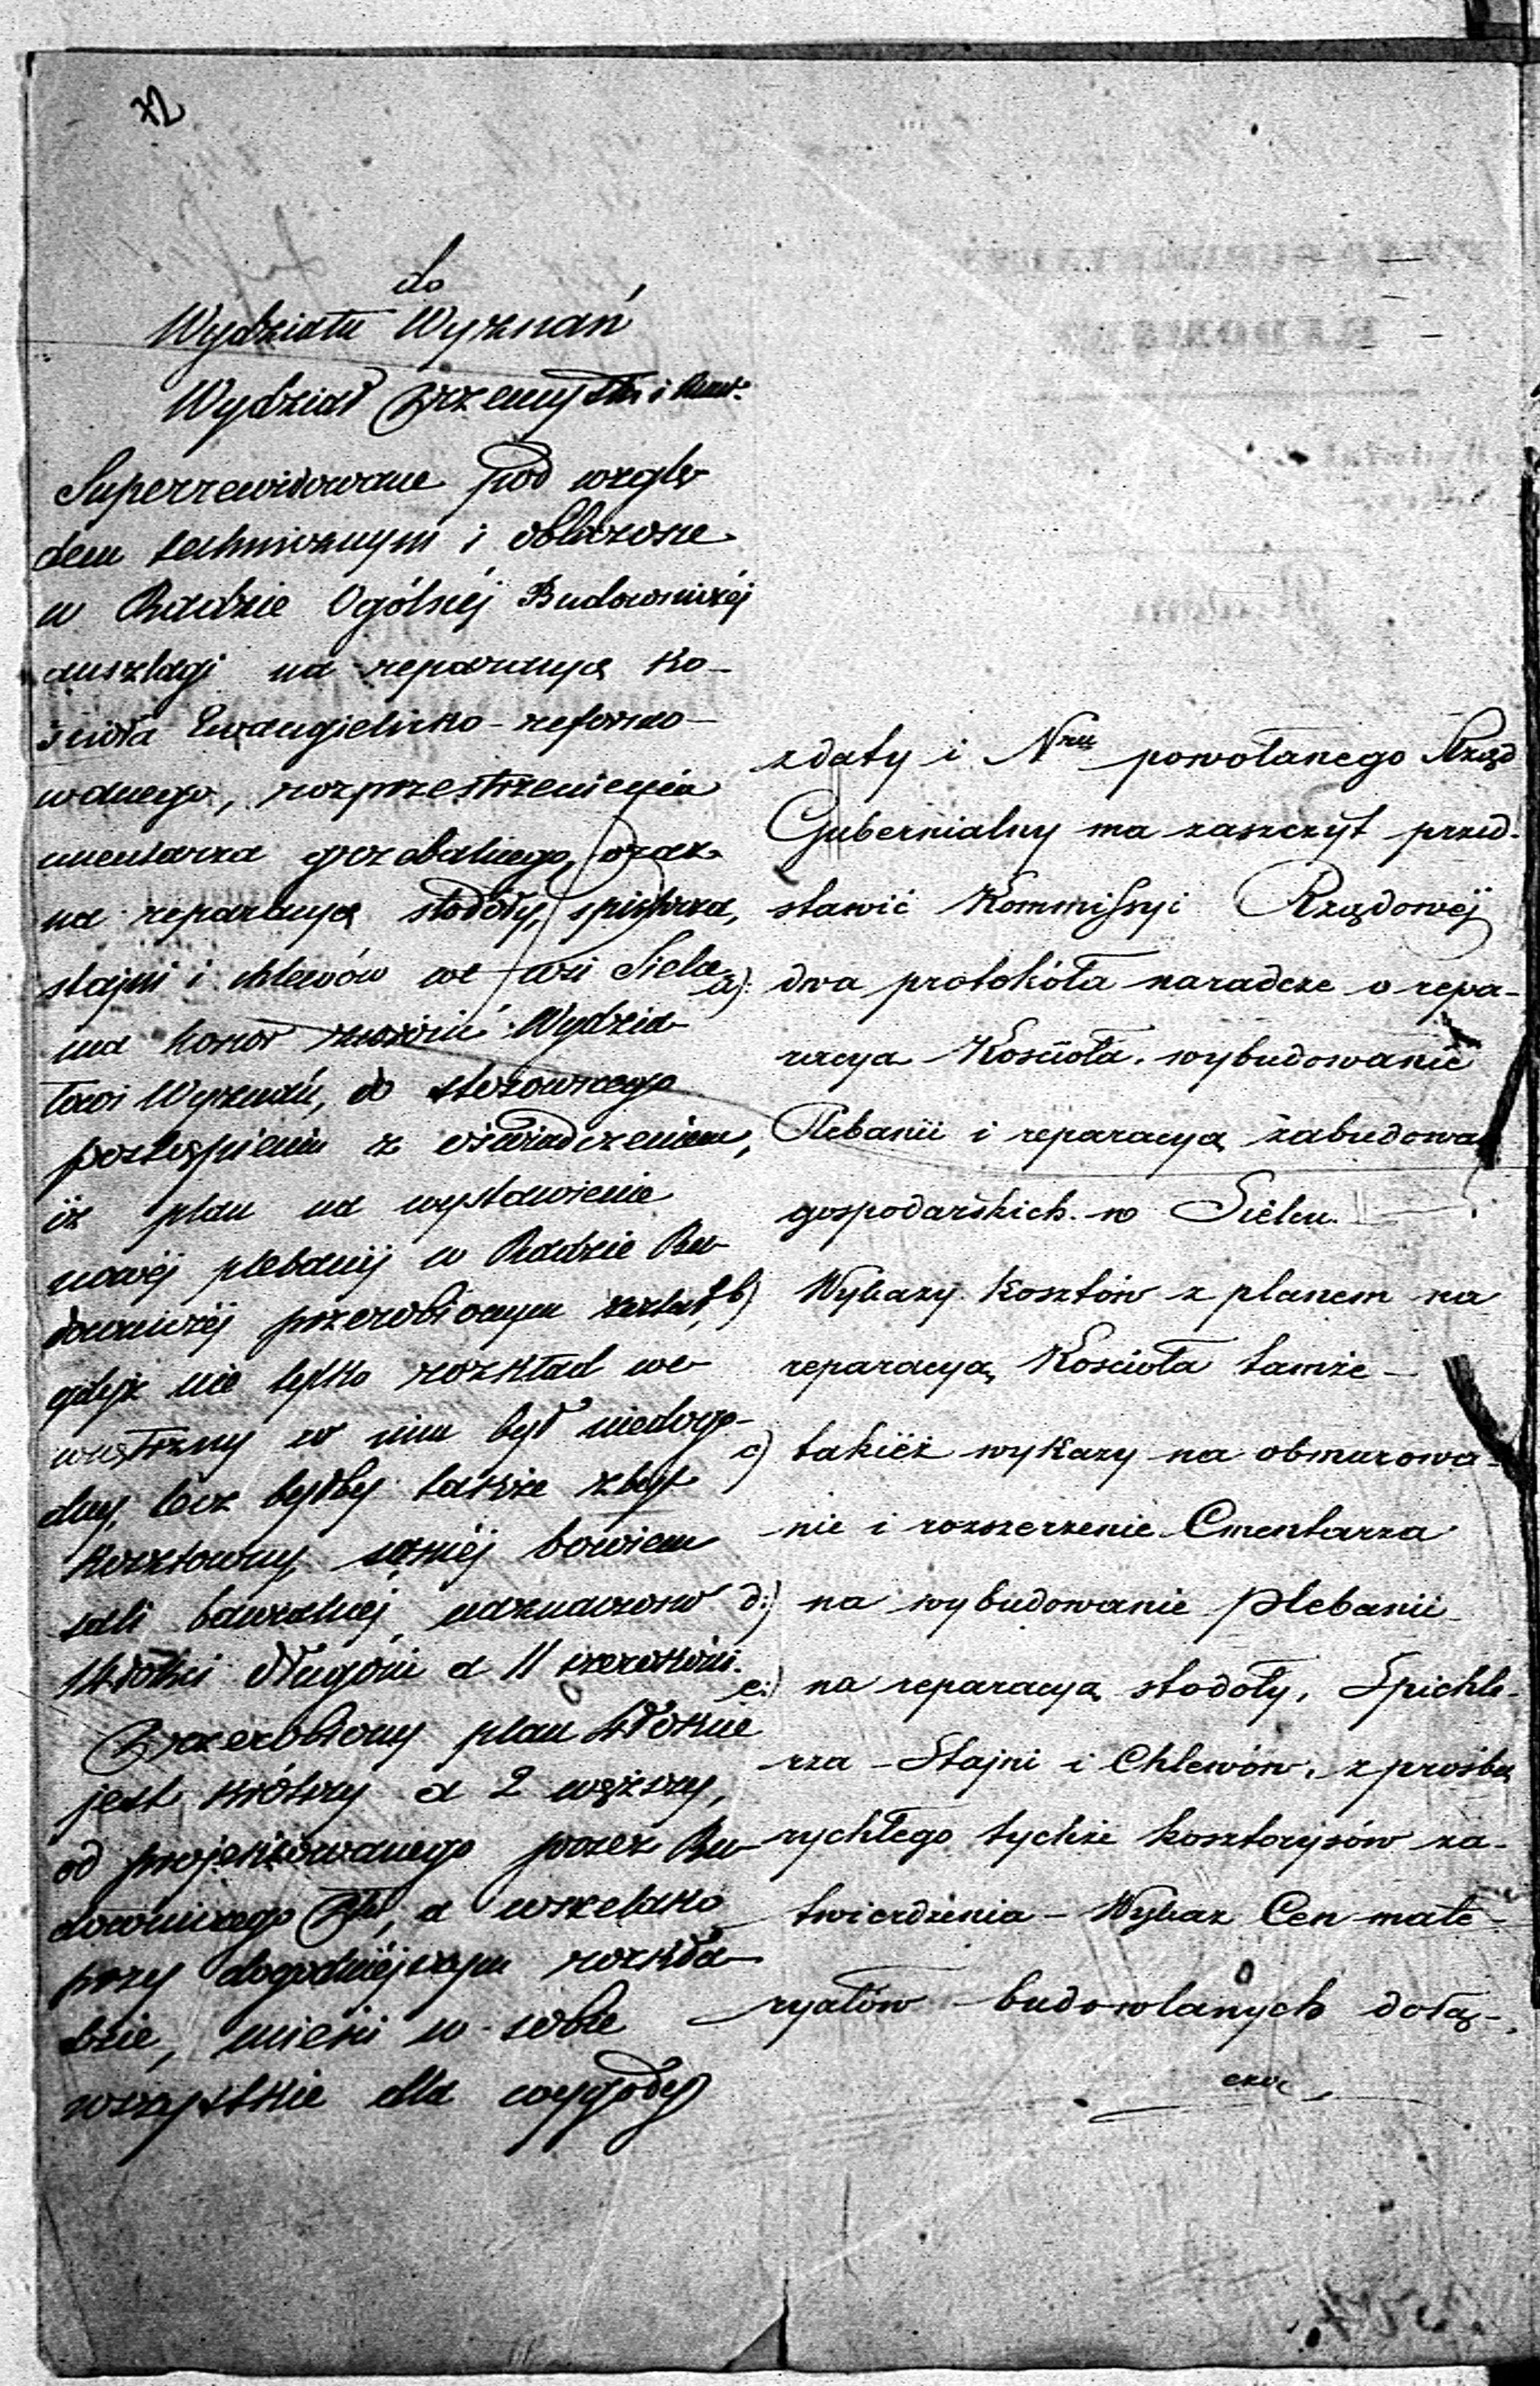 72
do
Wydziału Wyznań
Wydział Przemysłu i Kunst.
Superrewidowane pod wzglę
dem technicznym i obliczone
w Radzie Ogólnéj Budowniczéj
anszlagi na reparacyą Ko-
ścioła Ewangielicko-reformo-
wanego, rozprzestrzenienia
cmentarza grzebalnego, oraz
na reparacyą stodoły, spichrza,
stajni i chlewów we wsi Sielce
ma honor zwrócić Wydzia-
łowi Wyznań, do stosownego
postąpienia z oświadczeniem,
iż plan na wystawienie
nowéj plebanij w Radzie Bu-
downiczéj przerobionym został,
gdyż nie tylko rozkład we-
wnętrzny w nim był niedogo-
dny, lecz byłby także zbyt
kosztowny, saméj bowiem
sali bawialnéj naznaczono
14 łokci długości a 11 szerokości.
Przerobiony plan
jest krótszy a 2 węższy,
od projektowanego przez Bu-
downiczego Pttu, a wszelako
przy dogodniéjszym rozkła-
dzie, mieści w sobie
wszystkie dla wygody
z daty i Nru powołanego Rząd
Gubernialny ma zaszczyt przed-
stawić Kommissyi Rządowéj
a): dwa protokóła naradcze o repa-
racya Kościoła, wybudowanie
Plebanii i reparacyą zabudowa
gospodarskich w Sielcu.
b) Wykazy kosztów z planem na
reparacyą Kościoła tamże –
c) takież wykazy na obmurowa-
nie i rozszerzenie Cmentarza
d:) na wybudowanie Plebanii
e:) na reparacyą stodoły, Spichle-
rza – Stajni i Chlewów, z prośbą
rychłego tychże kosztorysów za-
twierdzenia – Wykaz Cen mate-
ryałów budowlanych dołą-
cza